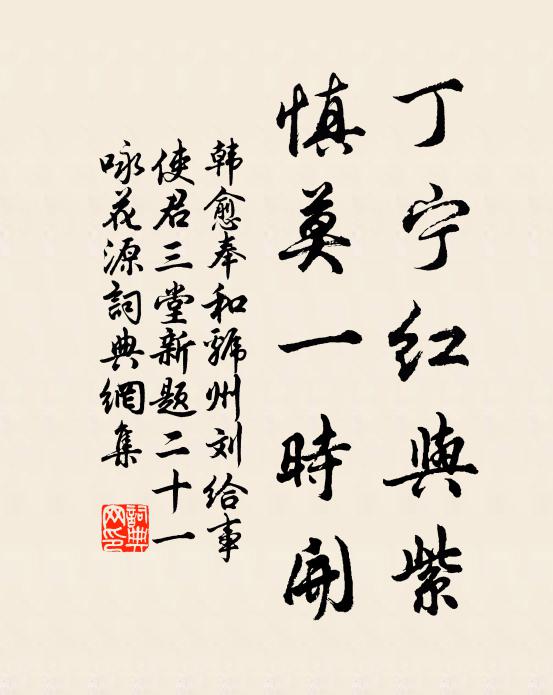 丁宁红與紫
慎莫一時開
韩愈奉和虢州刘给事
使君三堂新题二十一
咏花源詞典網集
詞典
网印